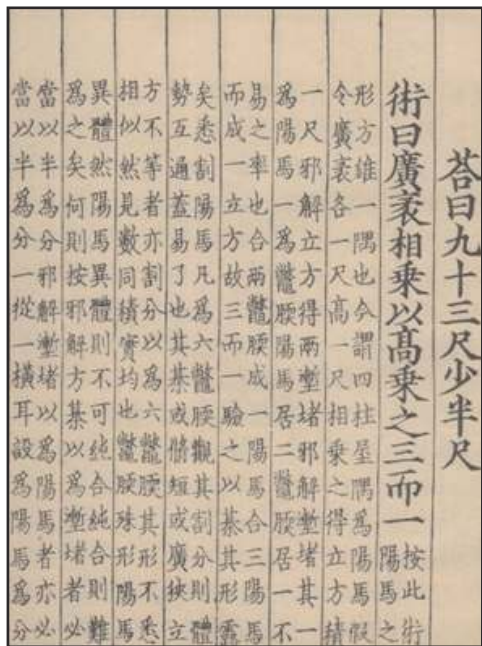 荅曰九十三尺少半尺
術曰廣袤相乗以髙乗之三而一
按此術
陽馬之
形方錐一隅也今謂四柱屋隅為陽馬假
令廣袤各一尺髙一尺相乗之得立方積
一尺邪解立方得兩壍堵邪解壍堵其一
為陽馬一為鼈腝陽馬居二鼈腝居一不
易之率也合兩鼈腝成一陽馬合三陽馬
而成一立方故三而一驗之以棊其形露
矣悉割陽馬凡為六鼈腝觀其割分則體
勢互通蓋易了也其棊或脩短或廣狹立
方不等者亦割分以為六鼈腝其形不悉
相似然見數同積實均也鼈腝殊形陽馬
異體然陽馬異體則不可純合純合則難
為之矣何則按邪解方棊以為壍堵者必
當以半為分邪解壍堵以為陽馬者亦必
當以半為分一從一橫耳設為陽馬為分